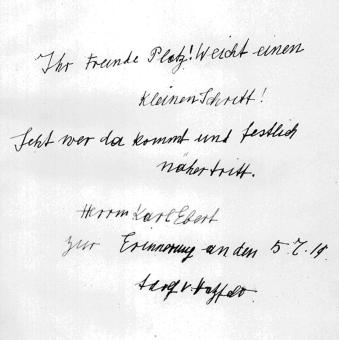 Ihr Freunde Platz! Weicht einen
kleinen Schritt!
Seht wer da kommt und festlich
näher tritt.
Herrn Karl Ebert
zur Erinnerung an den 5.7.19.
Adolf v. Hatzfeld.